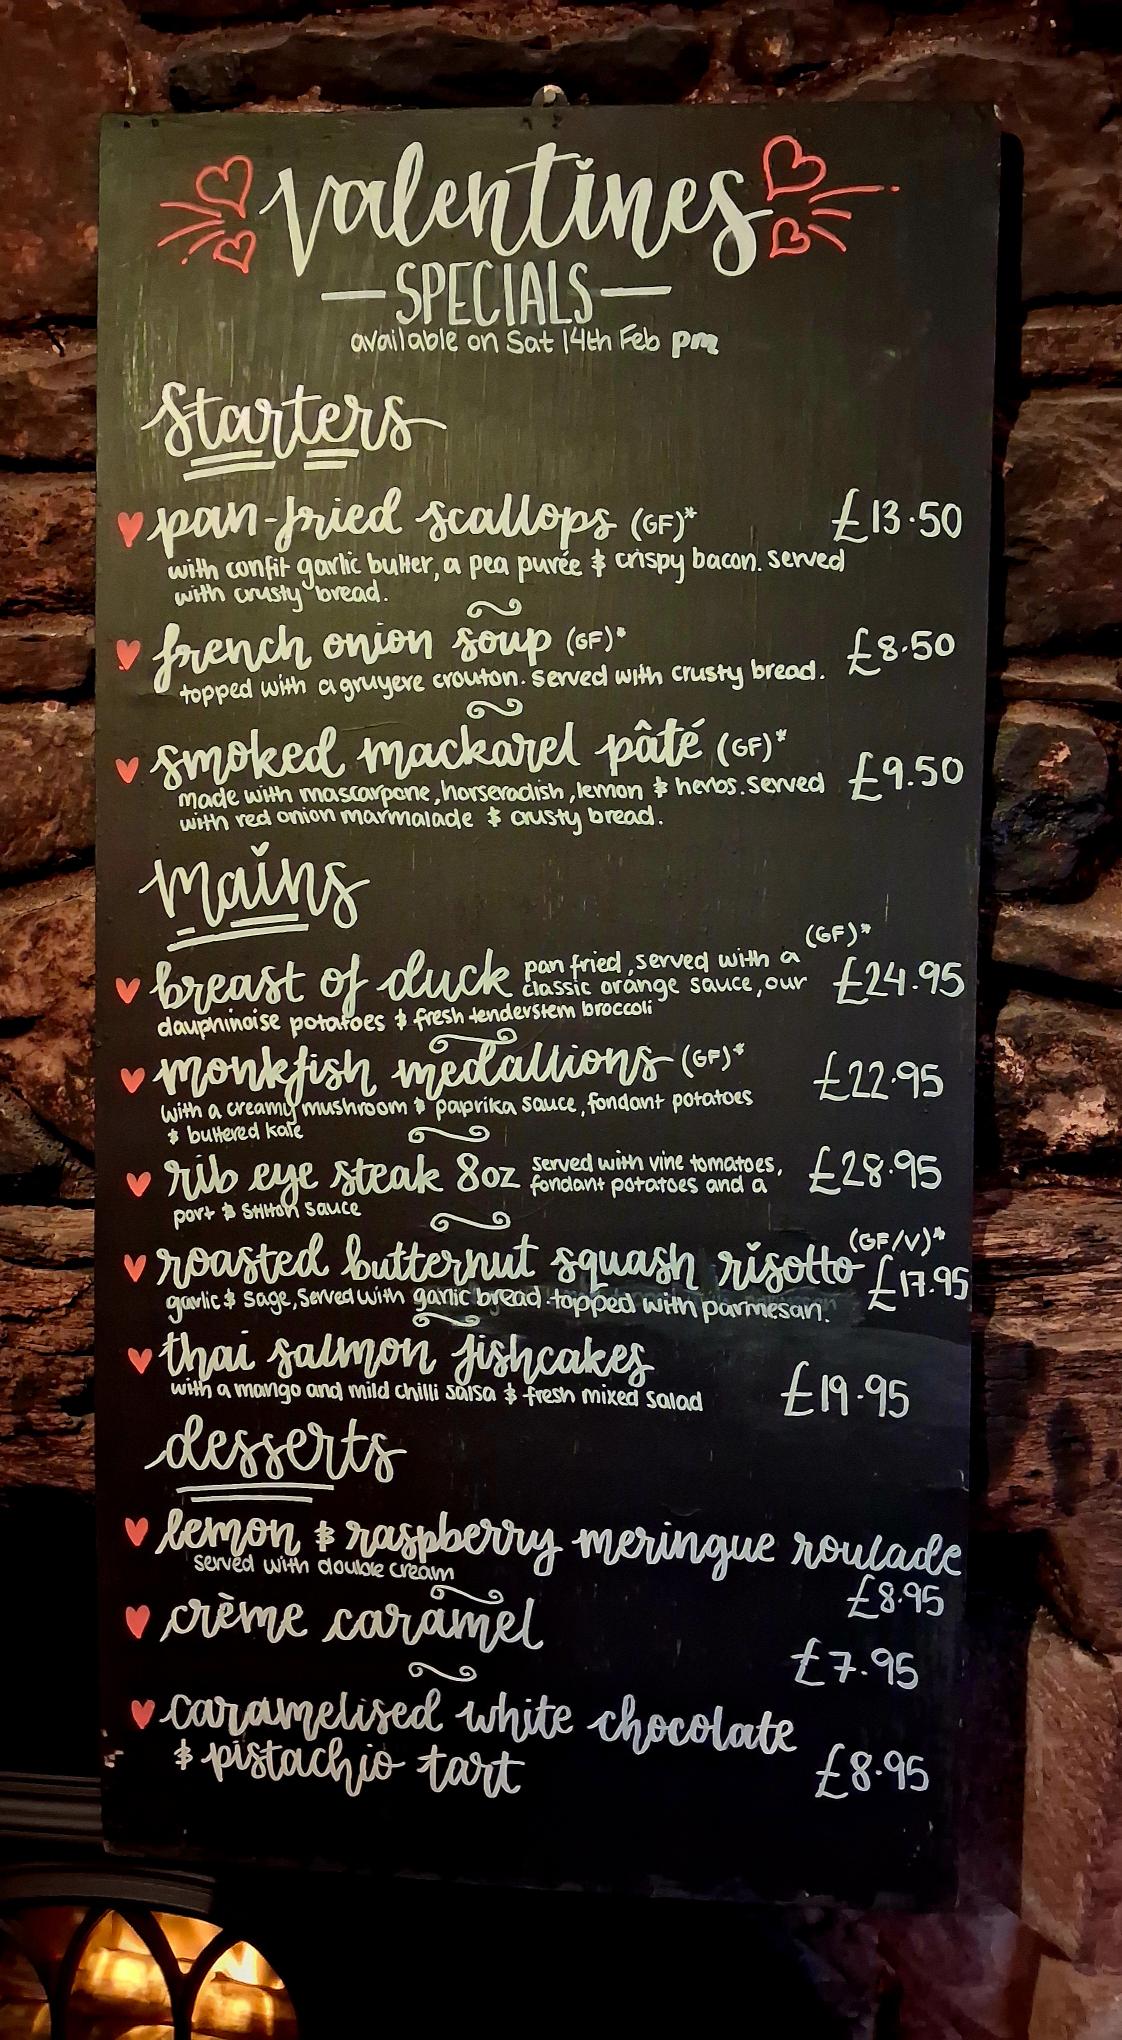 Valentines
SPECIALS
available on Sat 14th Feb pm
Starters
pan-fried scallops (GF)* £13.50
with confit garlic butter, a pea purée & crispy bacon. served
with crusty bread.
french onion soup (GF)* £8.50
topped with a gruyere crouton. served with crusty bread.
smoked mackarel pâté (GF)* £9.50
made with mascarpone, horseradish, lemon & herbs. served
with red onion marmalade & crusty bread.
mains
(GF)*
breast of duck pan fried, served with a £24.95
classic orange sauce, our
dauphinoise potatoes & fresh tenderstem broccoli
monkfish medallions (GF)* £22.95
with a creamy mushroom & paprika sauce, fondant potatoes
& buttered kale
rib eye steak 8oz served with vine tomatoes, £28.95
fondant potatoes and a
port & stilton sauce
(GF/V)*
roasted butternut squash risotto £17.95
garlic & sage, served with garlic bread. topped with parmesan.
thai salmon fishcakes
with a mango and mild chilli salsa & fresh mixed salad £19.95
desserts
lemon & raspberry meringue roulade
served with double cream £8.95
crème caramel
£7.95
caramelised white chocolate
& pistachio tart £8.95